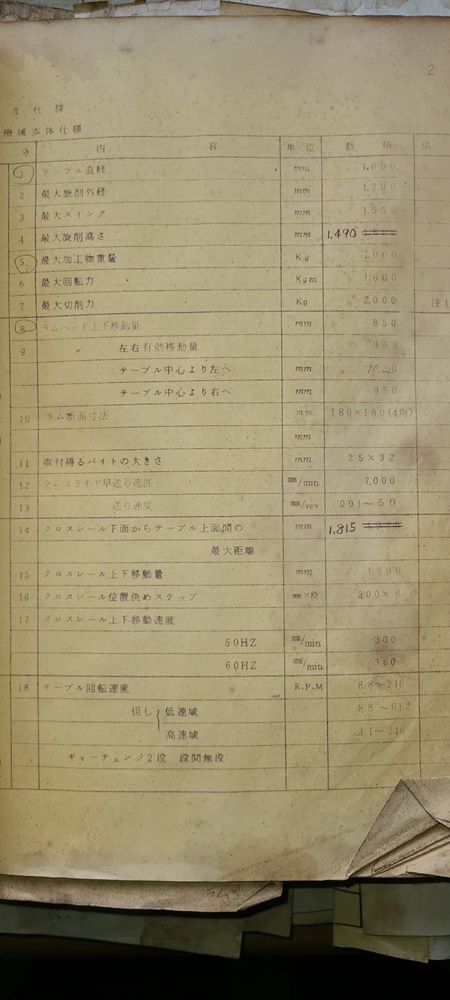 2
仕様
機械本体仕様
内容 単位 数値
1 テーブル直径 mm 1,600
2 最大旋削外経 mm 1,700
3 最大スイング mm
4 最大旋削高さ mm 1,490
5 最大加工物重量 Kg 7,000
6 最大回転力 Kgm 1,600
7 最大切削力 Kg 2,000
8 ラムヘッド上下移動量 mm 850
9 〃 左右有効移動量 mm
テーブル中心より左へ mm
テーブル中心より右へ mm 950
10 ラム断面寸法 mm 180×180(4角)
mm
11 取付得るバイトの大きさ mm 25×32
12 ラムスライド早送り速度 mm/min 7,000
13 送り速度 mm/rev 0.01〜50
14 クロスレール下面からテーブル上面間の mm 1,815
最大距離
15 クロスレール上下移動量 mm 1,200
16 クロスレール位置決めステップ mm×段
17 クロスレール上下移動速度
50HZ mm/min 300
60HZ mm/min 360
18 テーブル回転速度 R.P.M
但し 低速域
高速域
ギャーチェンジ2段 段間無段